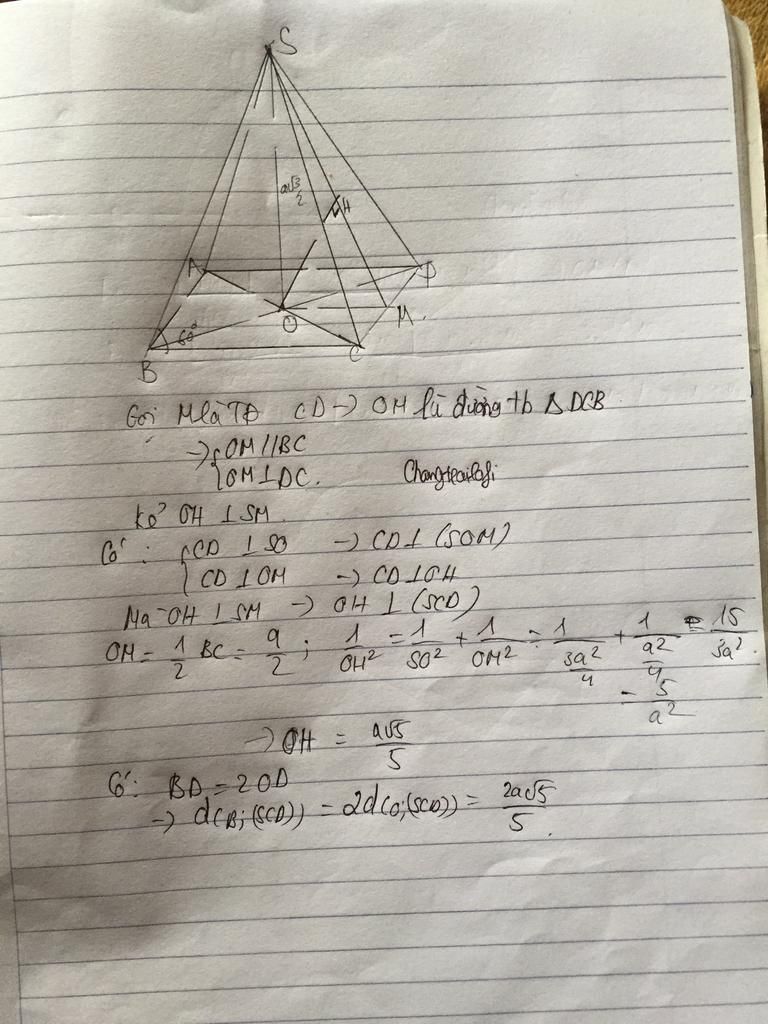 S
a√3/2
H
A
D
60°
O
M.
B
C
Gọi M là TĐ CD → OM là đường tb Δ DCB
→ { OM // BC
OM ⊥ DC.
Kẻ OH ⊥ SM.
Có: { CD ⊥ SO → CD ⊥ (SOM)
CD ⊥ OM → CD ⊥ OH
Mà OH ⊥ SM → OH ⊥ (SCD)
OM = 1/2 BC = a/2 ; 1/OH² = 1/SO² + 1/OM² = 1/(3a²/4) + 1/(a²/4) = 15/3a².
= 5/a²
→ OH = a√5/5
Có: BD = 2OD
→ d(B;(SCD)) = 2d(O;(SCD)) = 2a√5/5.